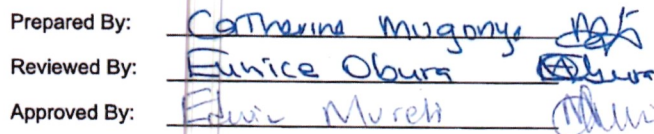 Prepared By: Catherine Mugonye
Reviewed By: Eunice Obura Obura
Approved By: Edwin Mureti